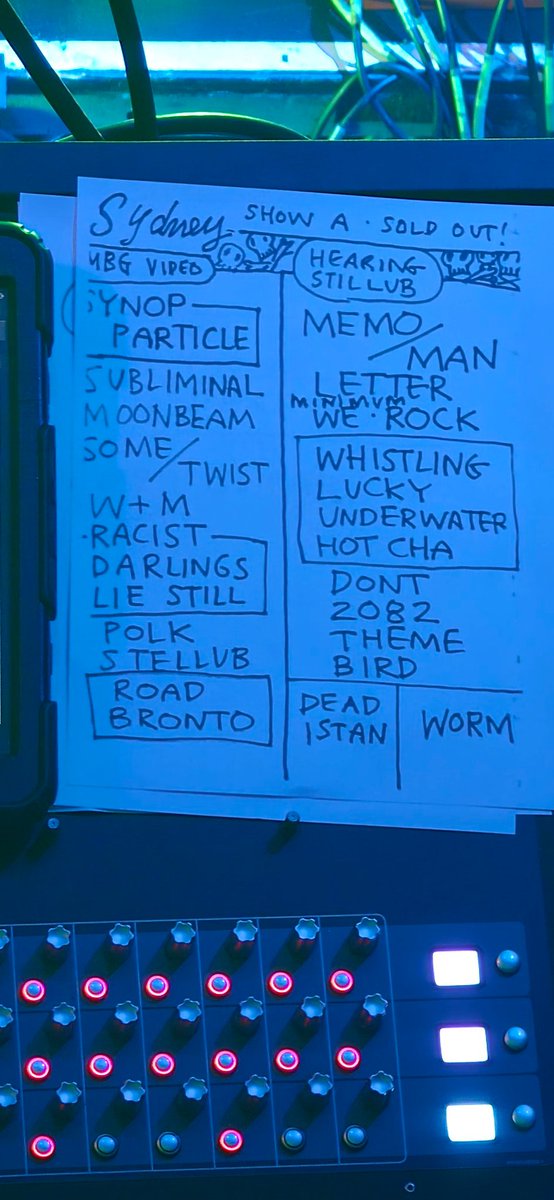 Sydney SHOW A · SOLD OUT!
MBG VIDEO
SYNOP
PARTICLE
SUBLIMINAL
MOONBEAM
SOME/
TWIST
W+M
·RACIST
DARLINGS
LIE STILL
POLK
STELLUB
ROAD
BRONTO
HEARING
STILLUB
MEMO/
MAN
LETTER
MINIMUM
WE·ROCK
WHISTLING
LUCKY
UNDERWATER
HOT CHA
DONT
2082
THEME
BIRD
DEAD
ISTAN
WORM